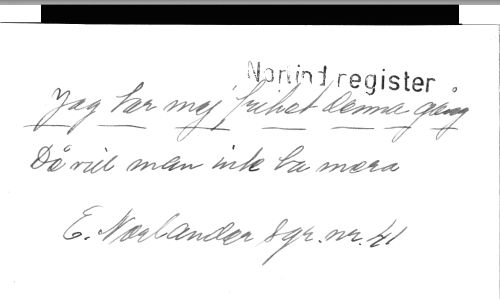 register
Jag tar mej frihet denna gång
Då vill man inte ha mera
E. Norlander sgr. nr. 41